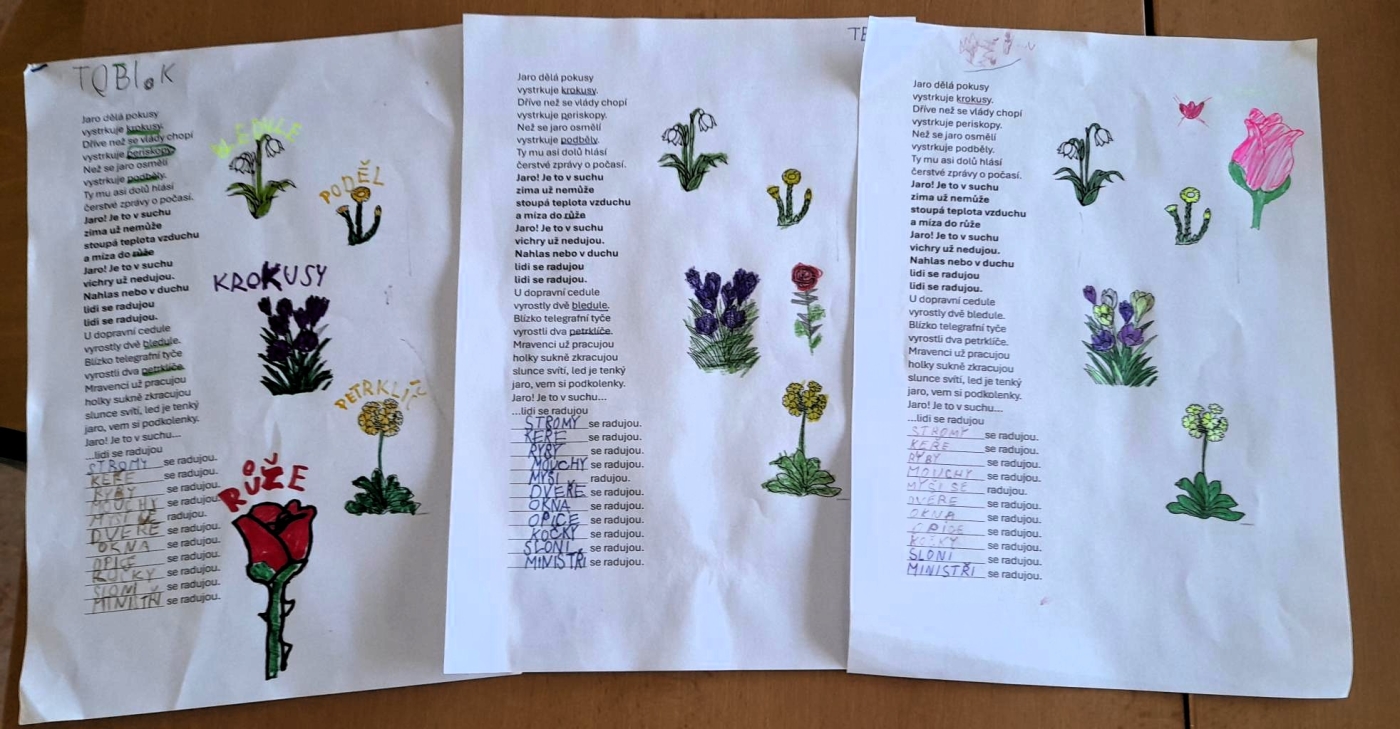 TOBÍK
Jaro dělá pokusy
vystrkuje krokusy.
Dříve než se vlády chopí
vystrkuje periskopy.
Než se jaro osmělí
vystrkuje podběly.
Ty mu asi dolů hlásí
čerstvé zprávy o počasí.
Jaro! Je to v suchu
zima už nemůže
stoupá teplota vzduchu
a míza do růže
Jaro! Je to v suchu
vichry už nedujou.
Nahlas nebo v duchu
lidi se radujou
lidi se radujou.
U dopravní cedule
vyrostly dvě bledule.
Blízko telegrafní tyče
vyrostli dva petrklíče.
Mravenci už pracujou
holky sukně zkracujou
slunce svítí, led je tenký
jaro, vem si podkolenky.
Jaro! Je to v suchu...
...lidi se radujou
STROMY se radujou.
KEŘE se radujou.
RYBY se radujou.
MOUCHY se radujou.
MYŠI SE radujou.
DVEŘE se radujou.
OKNA se radujou.
OPICE se radujou.
KOČKY se radujou.
SLONI se radujou.
MINISTŘI se radujou.
BLEDULE
PODĚL
KROKUSY
PETRKLÍČ
RŮŽE
TE
Jaro dělá pokusy
vystrkuje krokusy.
Dříve než se vlády chopí
vystrkuje periskopy.
Než se jaro osmělí
vystrkuje podběly.
Ty mu asi dolů hlásí
čerstvé zprávy o počasí.
Jaro! Je to v suchu
zima už nemůže
stoupá teplota vzduchu
a míza do růže
Jaro! Je to v suchu
vichry už nedujou.
Nahlas nebo v duchu
lidi se radujou
lidi se radujou.
U dopravní cedule
vyrostly dvě bledule.
Blízko telegrafní tyče
vyrostli dva petrklíče.
Mravenci už pracujou
holky sukně zkracujou
slunce svítí, led je tenký
jaro, vem si podkolenky.
Jaro! Je to v suchu...
...lidi se radujou
STROMY se radujou.
KEŘE se radujou.
RYBY se radujou.
MOUCHY se radujou.
MYŠI radujou.
DVEŘE se radujou.
OKNA se radujou.
OPICE se radujou.
KOČKY se radujou.
SLONI se radujou.
MINISTŘI se radujou.
Jaro dělá pokusy
vystrkuje krokusy.
Dříve než se vlády chopí
vystrkuje periskopy.
Než se jaro osmělí
vystrkuje podběly.
Ty mu asi dolů hlásí
čerstvé zprávy o počasí.
Jaro! Je to v suchu
zima už nemůže
stoupá teplota vzduchu
a míza do růže
Jaro! Je to v suchu
vichry už nedujou.
Nahlas nebo v duchu
lidi se radujou
lidi se radujou.
U dopravní cedule
vyrostly dvě bledule.
Blízko telegrafní tyče
vyrostli dva petrklíče.
Mravenci už pracujou
holky sukně zkracujou
slunce svítí, led je tenký
jaro, vem si podkolenky.
Jaro! Je to v suchu...
...lidi se radujou
STROMY se radujou.
KEŘE se radujou.
RYBY se radujou.
MOUCHY se radujou.
MYŠI SE radujou.
DVEŘE se radujou.
OKNA se radujou.
OPICE se radujou.
KOČKY se radujou.
SLONI se radujou.
MINISTŘI se radujou.